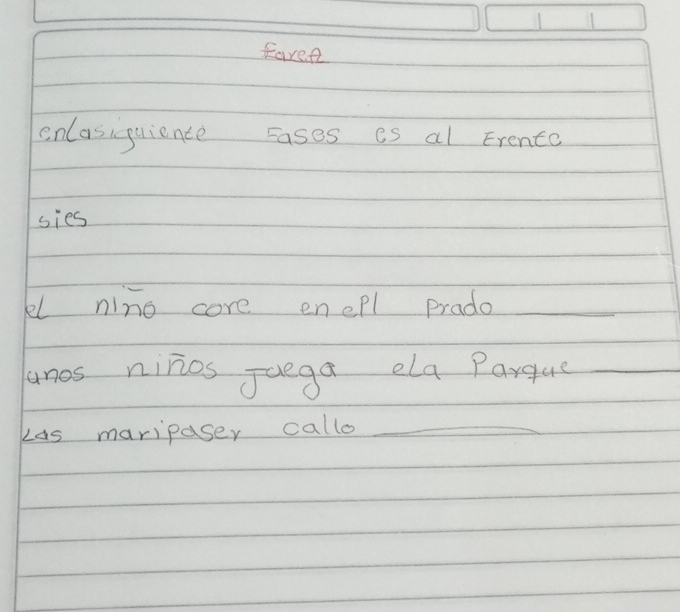 tarea
enlasiguiente Fases es al Frente
sies
el niño core en epl prado
unos niños juega ela Parque
Las maripaser callo